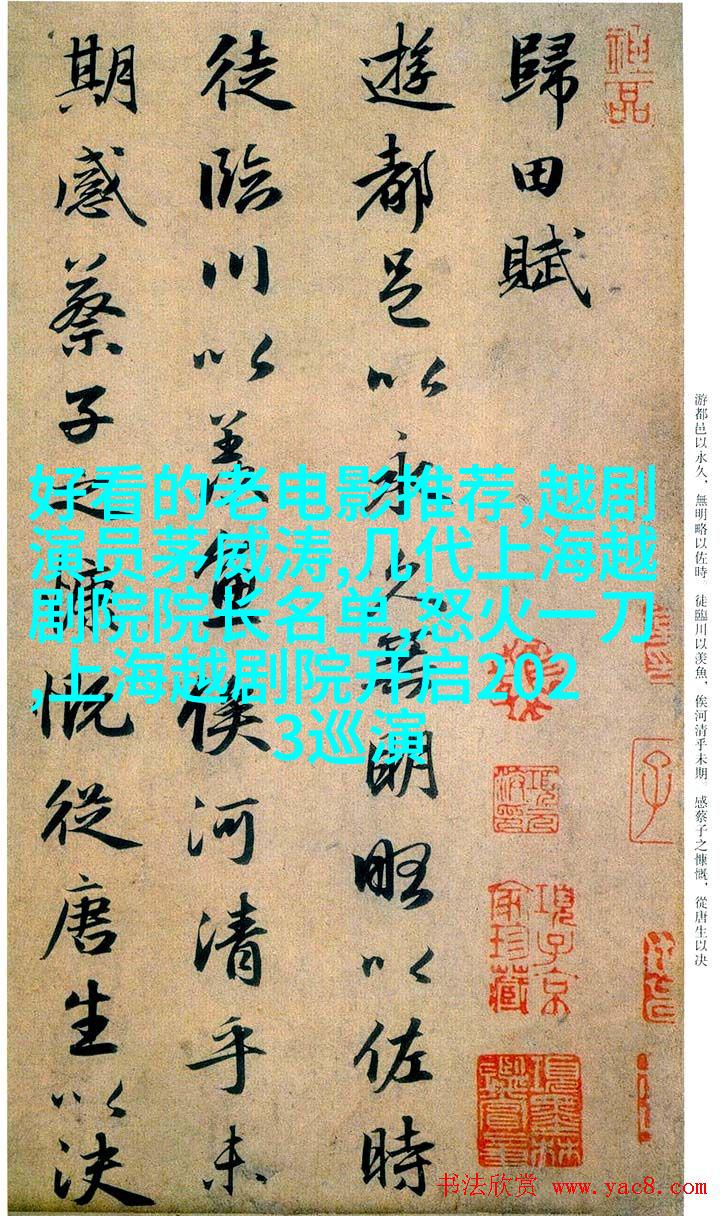 歸田賦
遊都邑以永久無明略以佐時
徒臨川以羨魚俟河清乎未
期感蔡子之慷慨從唐生以決
好看的老电影推荐,越剧
演员茅威涛,几代上海越
剧院院长名单,怒火一刀
,上海越剧院开启202
3巡演
游都邑以永久,無明略以佐時。徒臨川以羨魚,俟河清乎未期。感蔡子之慷慨,從唐生以決
神品
子
項子京家珍藏
項墨林鑑賞章
书法欣赏 www.yac8.com